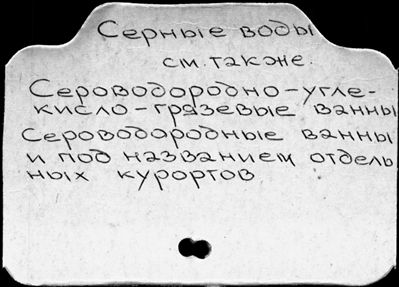 Серные воды
см. также.
Сероводородно-угле-
кисло-грязевые ванны
Сероводородные ванны
и под названием отдель
ных курортов